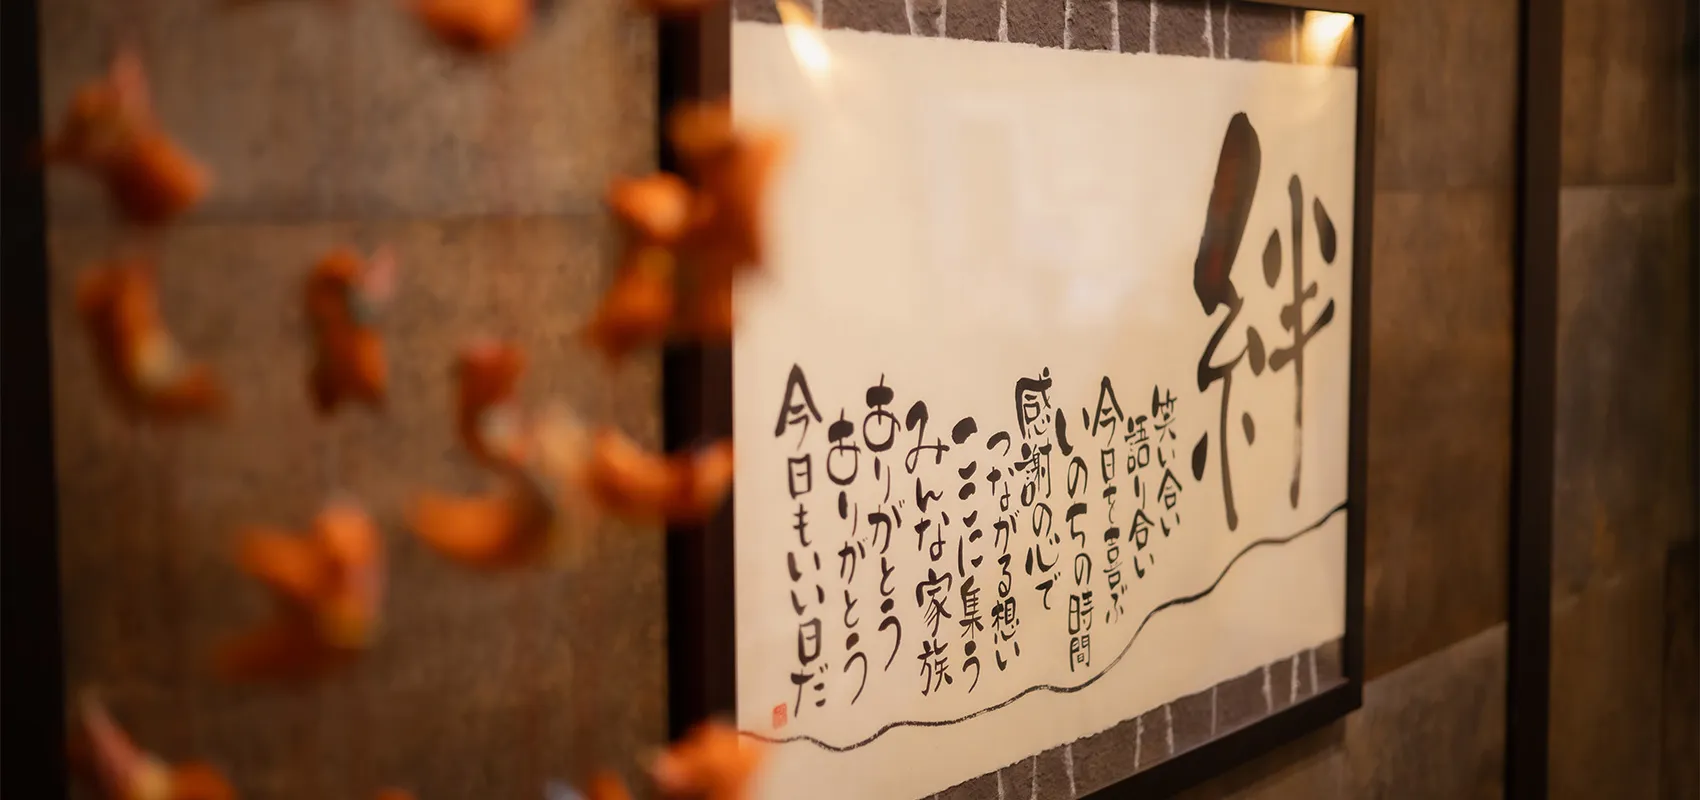 絆
笑い合い
語り合い
今日を喜ぶ
いのちの時間
感謝の心で
つながる想い
ここに集う
みんな家族
ありがとう
ありがとう
今日もいい日だ